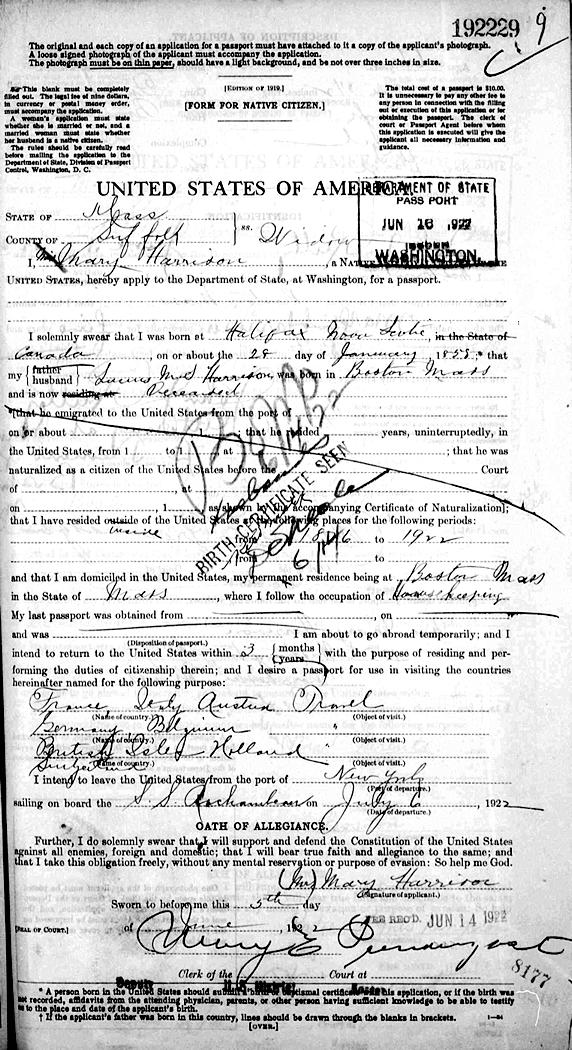 192229 9
The original and each copy of an application for a passport must have attached to it a copy of the applicant's photograph.
A loose signed photograph of the applicant must accompany the application.
The photograph must be on thin paper, should have a light background, and be not over three inches in size.
This blank must be completely
filled out. The legal fee of nine dollars,
in currency or postal money order,
must accompany the application.
A woman's application must state
whether she is married or not, and a
married woman must state whether
her husband is a native citizen.
The rules should be carefully read
before mailing the application to the
Department of State, Division of Passport
Control, Washington, D. C.
[EDITION OF 1919.]
[FORM FOR NATIVE CITIZEN.]
The total cost of a passport is $10.00.
It is unnecessary to pay any other fee to
any person in connection with the filling
out or execution of this application or for
obtaining the passport. The clerk of
court or Passport Agent before whom
this application is executed will give the
applicant all necessary information and
guidance.
UNITED STATES OF AMERICA
DEPARTMENT OF STATE
PASSPORT
JUN 16 1922
WASHINGTON
STATE OF Mass
COUNTY OF Suffolk ss. Widow
I, Mrs Mary Harrison, a NATIVE
UNITED STATES, hereby apply to the Department of State, at Washington, for a passport.
I solemnly swear that I was born at Halifax Nova Scotia, in the State of
Canada, on or about the 28 day of January, 185 that
my {father husband} Harrison, was born in Boston Mass
and is now residing at Deceased
*[that he emigrated to the United States from the port of
on or about 1 ; that he resided years, uninterruptedly, in
the United States, from 1 to 1 at ; that he was
naturalized as a citizen of the United States before the Court
of , at
on , 1 , as shown by the accompanying Certificate of Naturalization];
BIRTH CERTIFICATE SEEN
that I have resided outside of the United States at the following places for the following periods:
inside
from 18 6 to 1922
, from to
and that I am domiciled in the United States, my permanent residence being at Boston Mass
in the State of Mass, where I follow the occupation of Housekeeping
My last passport was obtained from , on
and was I am about to go abroad temporarily; and I
(Disposition of passport.)
intend to return to the United States within 3 {months years} with the purpose of residing and per-
forming the duties of citizenship therein; and I desire a passport for use in visiting the countries
hereinafter named for the following purpose:
France Italy Austria Travel
(Name of country.) (Object of visit.)
Germany Belgium "
(Name of country.) (Object of visit.)
British Isles Holland "
(Name of country.) (Object of visit.)
Switzerland
I intend to leave the United States from the port of New York
(Port of departure.)
sailing on board the S. S. Rochambeau on July 6, 1922
(Date of departure.)
OATH OF ALLEGIANCE.
Further, I do solemnly swear that I will support and defend the Constitution of the United States
against all enemies, foreign and domestic; that I will bear true faith and allegiance to the same; and
that I take this obligation freely, without any mental reservation or purpose of evasion: So help me God.
(Mrs) Mary Harrison
(Signature of applicant.)
Sworn to before me this 5th day
of June, 1922
FEE REC'D. JUN 14 1922
[SEAL OF COURT.]
Mary E Prendergast
Deputy Clerk of the U.S. District Court at Boston
8177
* A person born in the United States should submit a birth or baptismal certificate with this application, or if the birth was
not recorded, affidavits from the attending physician, parents, or other person having sufficient knowledge to be able to testify
as to the place and date of the applicant's birth.
† If the applicant's father was born in this country, lines should be drawn through the blanks in brackets.
[OVER.]